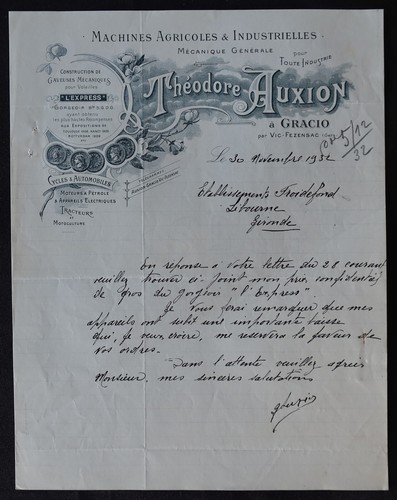 MACHINES AGRICOLES & INDUSTRIELLES
MÉCANIQUE GÉNÉRALE
pour
TOUTE INDUSTRIE
CONSTRUCTION DE
GAVEUSES MÉCANIQUES
pour Volailles
"L'EXPRESS"
ayant obtenu
les plus hautes Récompenses
AUX EXPOSITIONS
Théodore AUXION
à GRACIO
par VIC-FEZENSAC (Gers)
5/12
32
CYCLES & AUTOMOBILES
MOTEURS À PÉTROLE
& APPAREILS ÉLECTRIQUES
TRACTEURS
DE
MOTOCULTURE
Le 30 Novembre 1932
Etablissements Froidefond
Libourne
Gironde
En réponse à votre lettre du 28 courant
veuillez trouver ci-joint mon prix confidentiel
de gros du gorgeoir "l'Express"
Je vous ferai remarquer que mes
appareils ont subit une importante baisse
qui, je veux croire, me reservera la faveur de
vos ordres.
Dans l'attente veuillez agréer
Monsieur, mes sincères salutations